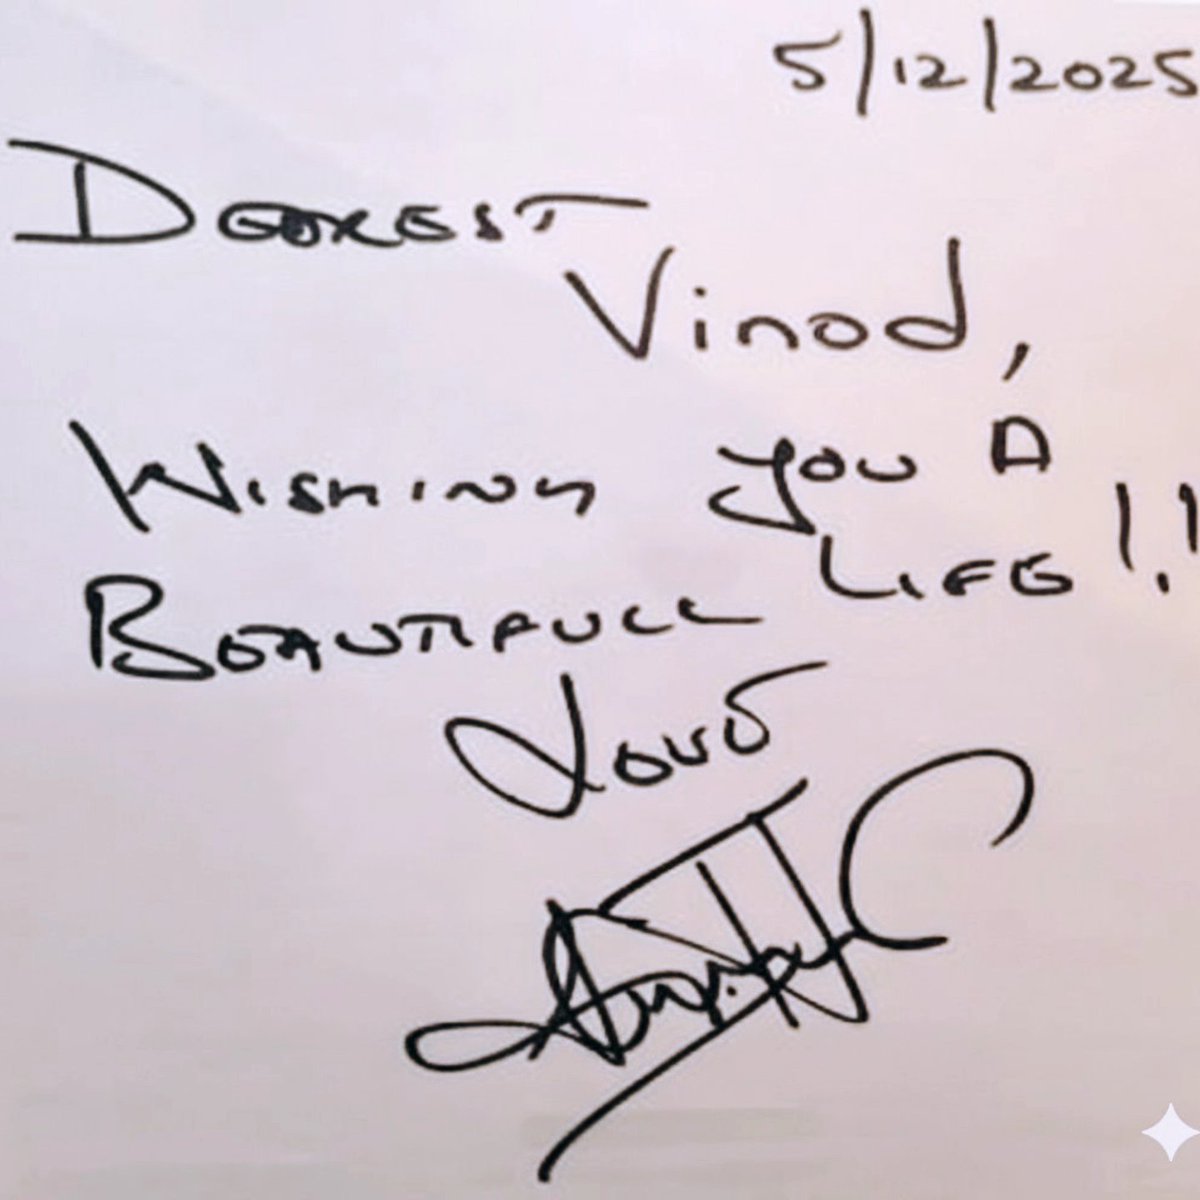 5/12/2025
Dearest
Vinod,
Wishing you A
Beautifull Life!!
Love